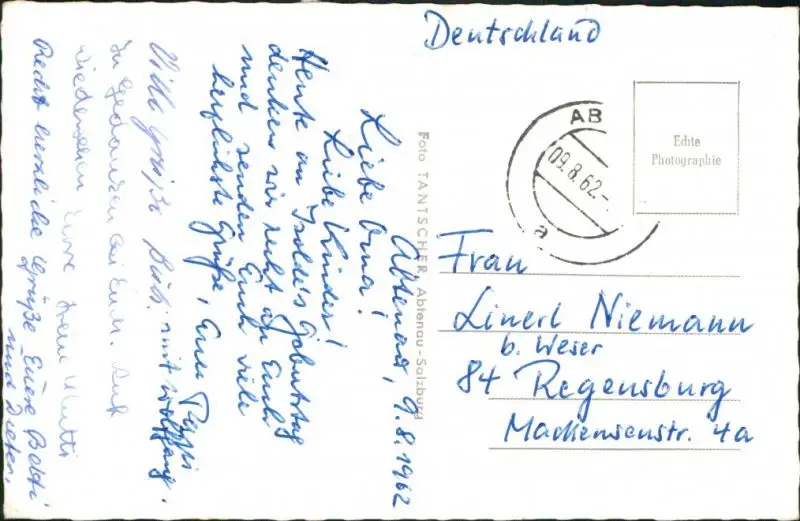 Deutschland
Echte
Photographie
AB
09.8.62-
a
Foto TANTSCHER, Abtenau-Salzburg
Abtenau, 9.8.1962
Liebe Oma!
Liebe Kinder!
Heute an Isolde's Geburtstag
denken wir recht an Euch
und senden Euch viele
herzlichste Grüße, Euer Pappi
Viele Grüße mit Wolfgang.
In Gedanken bei Euch. Auf
Wiedersehen Eure Mutti
Recht herzliche Grüße Eure Betti
und Dieter.
Frau
Linerl Niemann
b. Weser
84 Regensburg
Mackensenstr. 4a